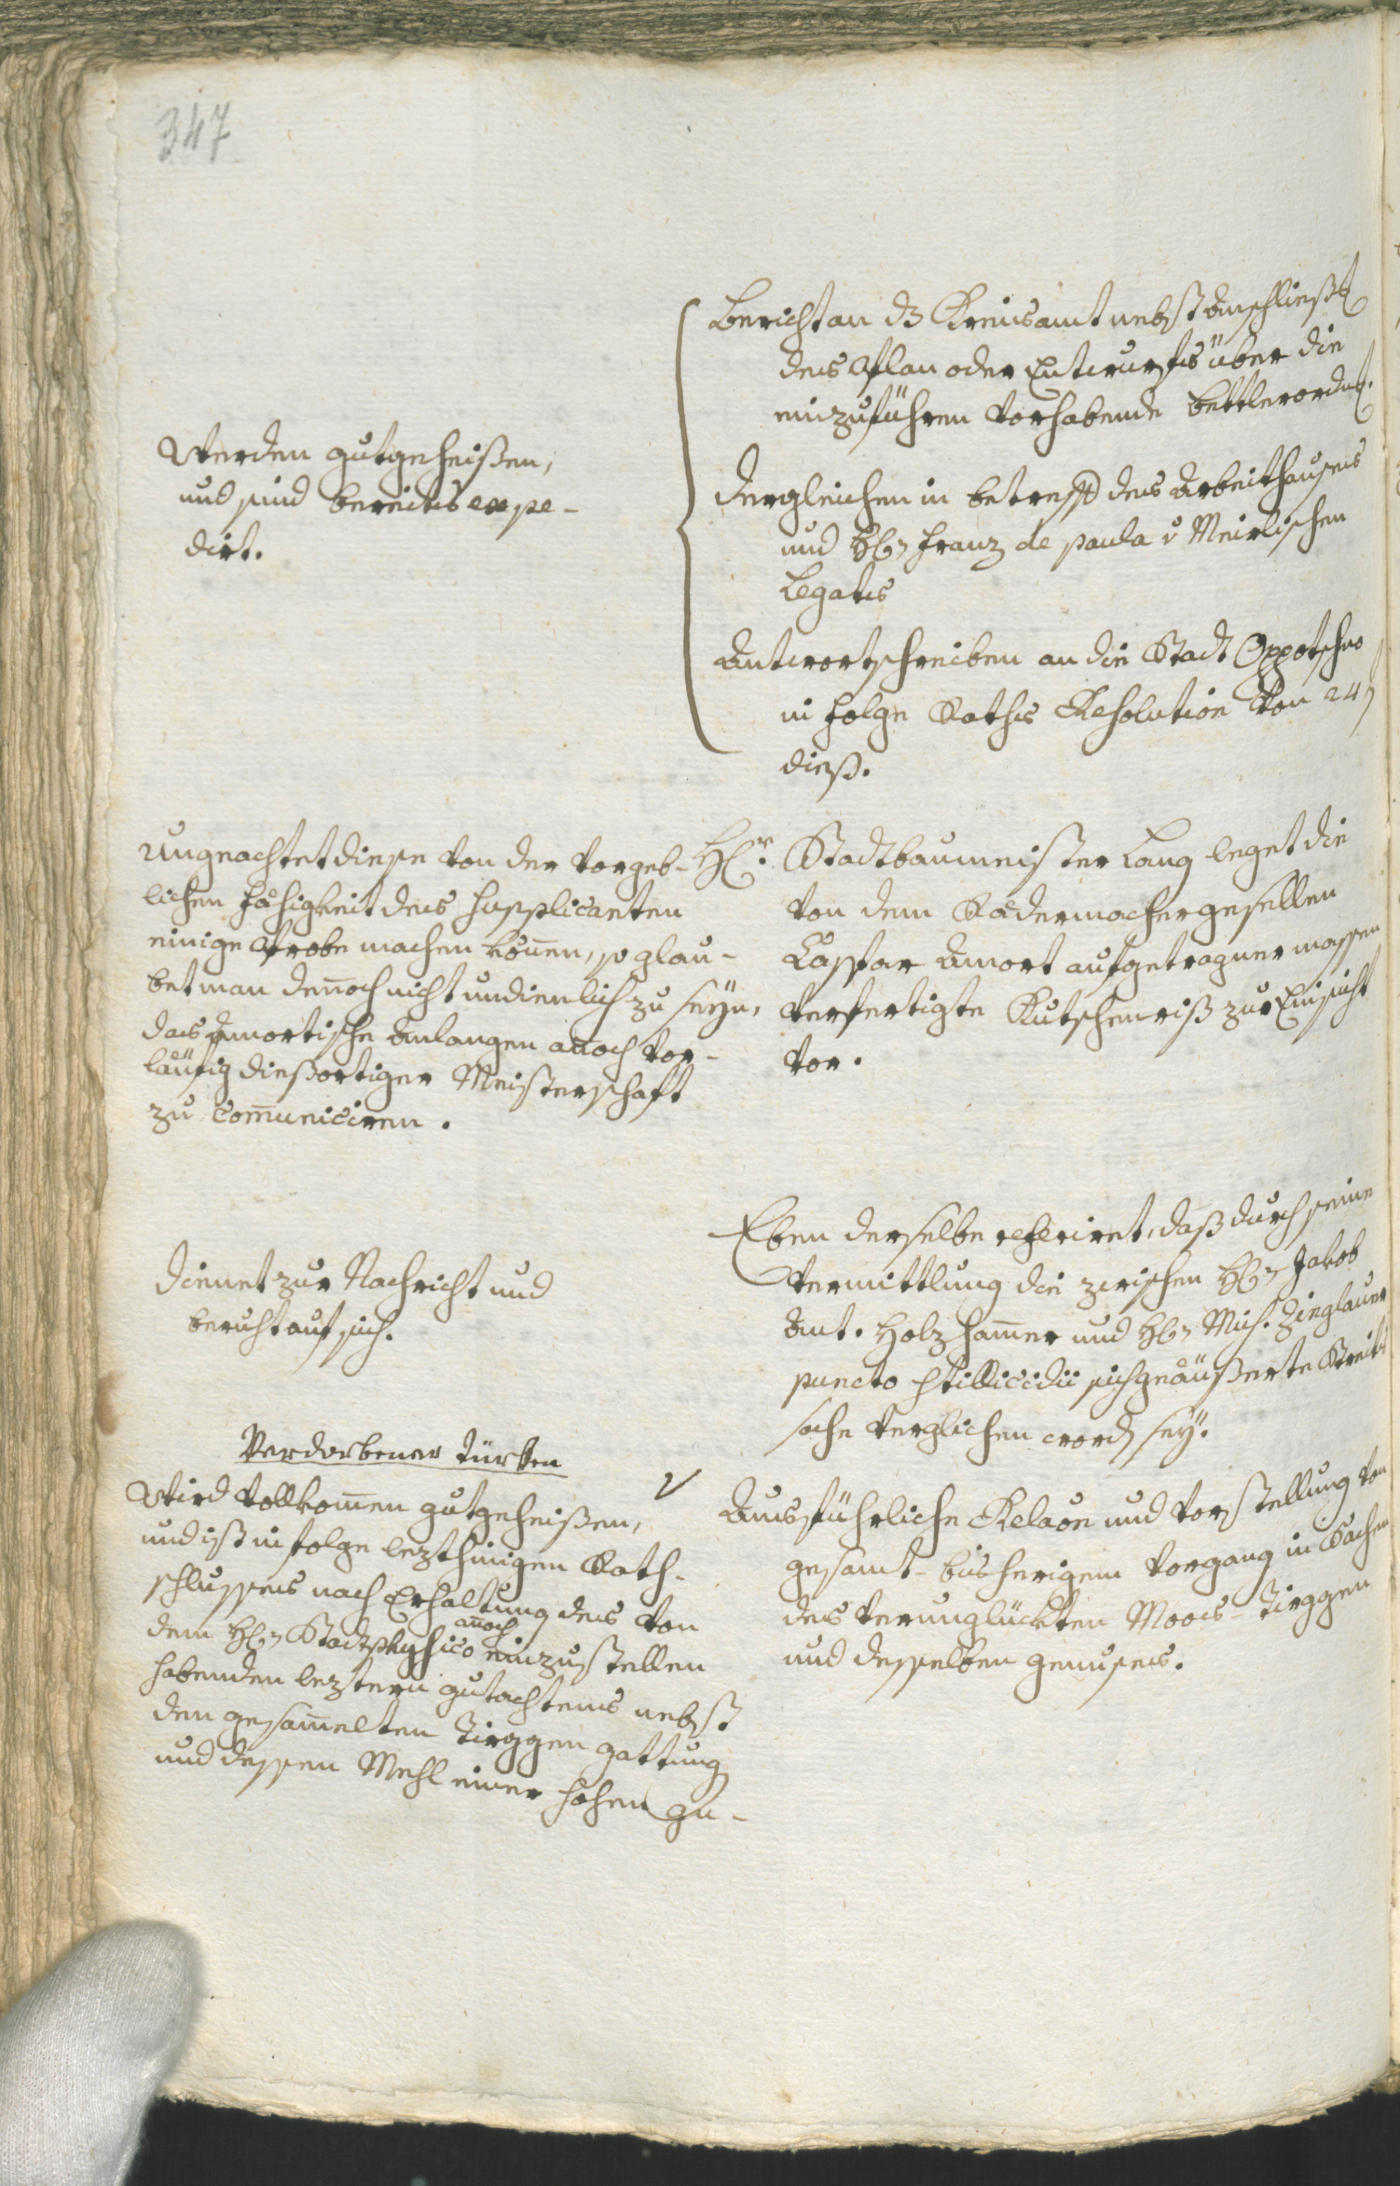 347
Bericht an dz Kreisamt nebst Anschließ
des Plan oder Entwurfs über die
einzuführen vorhabende Bettlerordn.
Werden gutgeheißen,
und sind bereits expe-
dirt.
Dergleichen in betreff des Arbeithauses
und Hl Franz de paula v Meirlischen
Legats
Antwortschreiben an die Stadt Oppotschno
in folge Raths Resolution von 24
dieß.
Ungeachtet diese von der vorgeb-
lichen Fähigkeit des Supplicanten
einige Probe machen könen, so glau-
bet man denoch nicht undienlich zu seyn,
das Amortische Anlangen anoch vor-
läufig dießortiger Meisterschaft
zu comuniciren.
Hr. Stadtbaumeister Lang leget die
von dem Radermachergesellen
Caspar Amort aufgetragner massen
verfertigte Kutschenriß zur Einsicht
vor.
Dienet zur Nachricht und
beruht auf sich.
Eben derselbe referiret, daß durch seine
Vermittlung die zwischen Hl Jakob
Ant. Holzhamer und Hl Mich. Zieglauer
puncto stillicidii sich geäußerte Streit
sache verglichen word sey.
Verdorbener Türken
Wird vollkomen gutgeheißen,
und ist in folge lezthinigen Rath-
schlusses nach Erhaltung des von
dem Hl Stadtphysico anoch einzustellen
habenden leztern gutachtens nebst
den gesamelten Tirggen gattung
und dessen Mehl einer hohen Gu-
Ausführliche Relaon und Vorstellung von
gesamt-bisherigem Vorgang in Sachen
des verunglückten Moos-Tirggen
und desselben genuses.